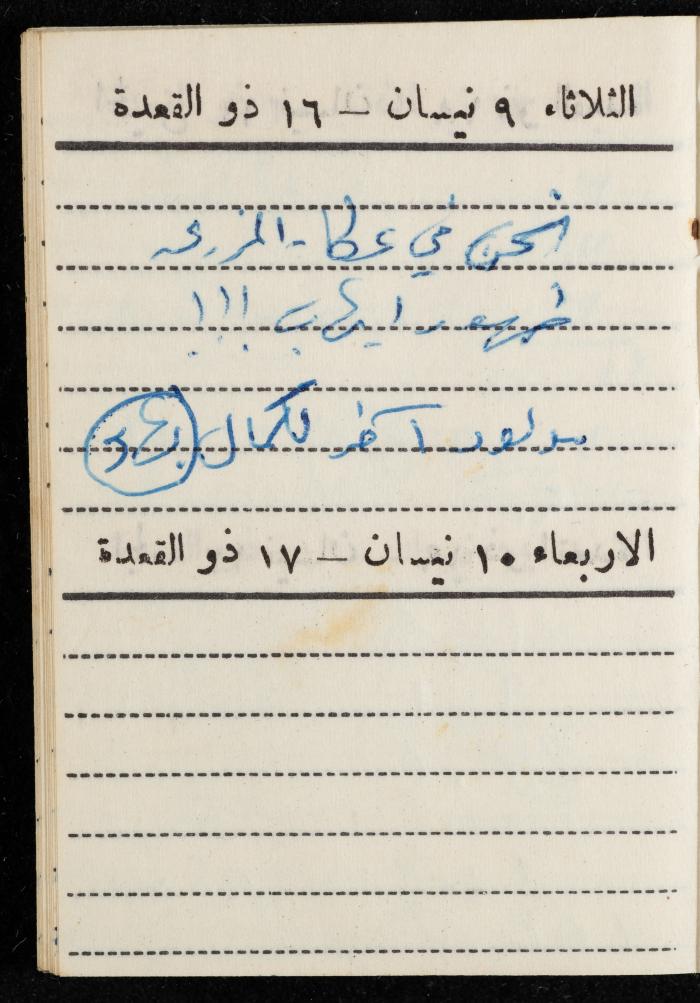 الثلاثاء ٩ نيسان – ١٦ ذو القعدة
نحن في عكا - المزرعه
ظهور ايهاب !!!
مولود آخر لكمال
الاربعاء ١٠ نيسان – ١٧ ذو القعدة